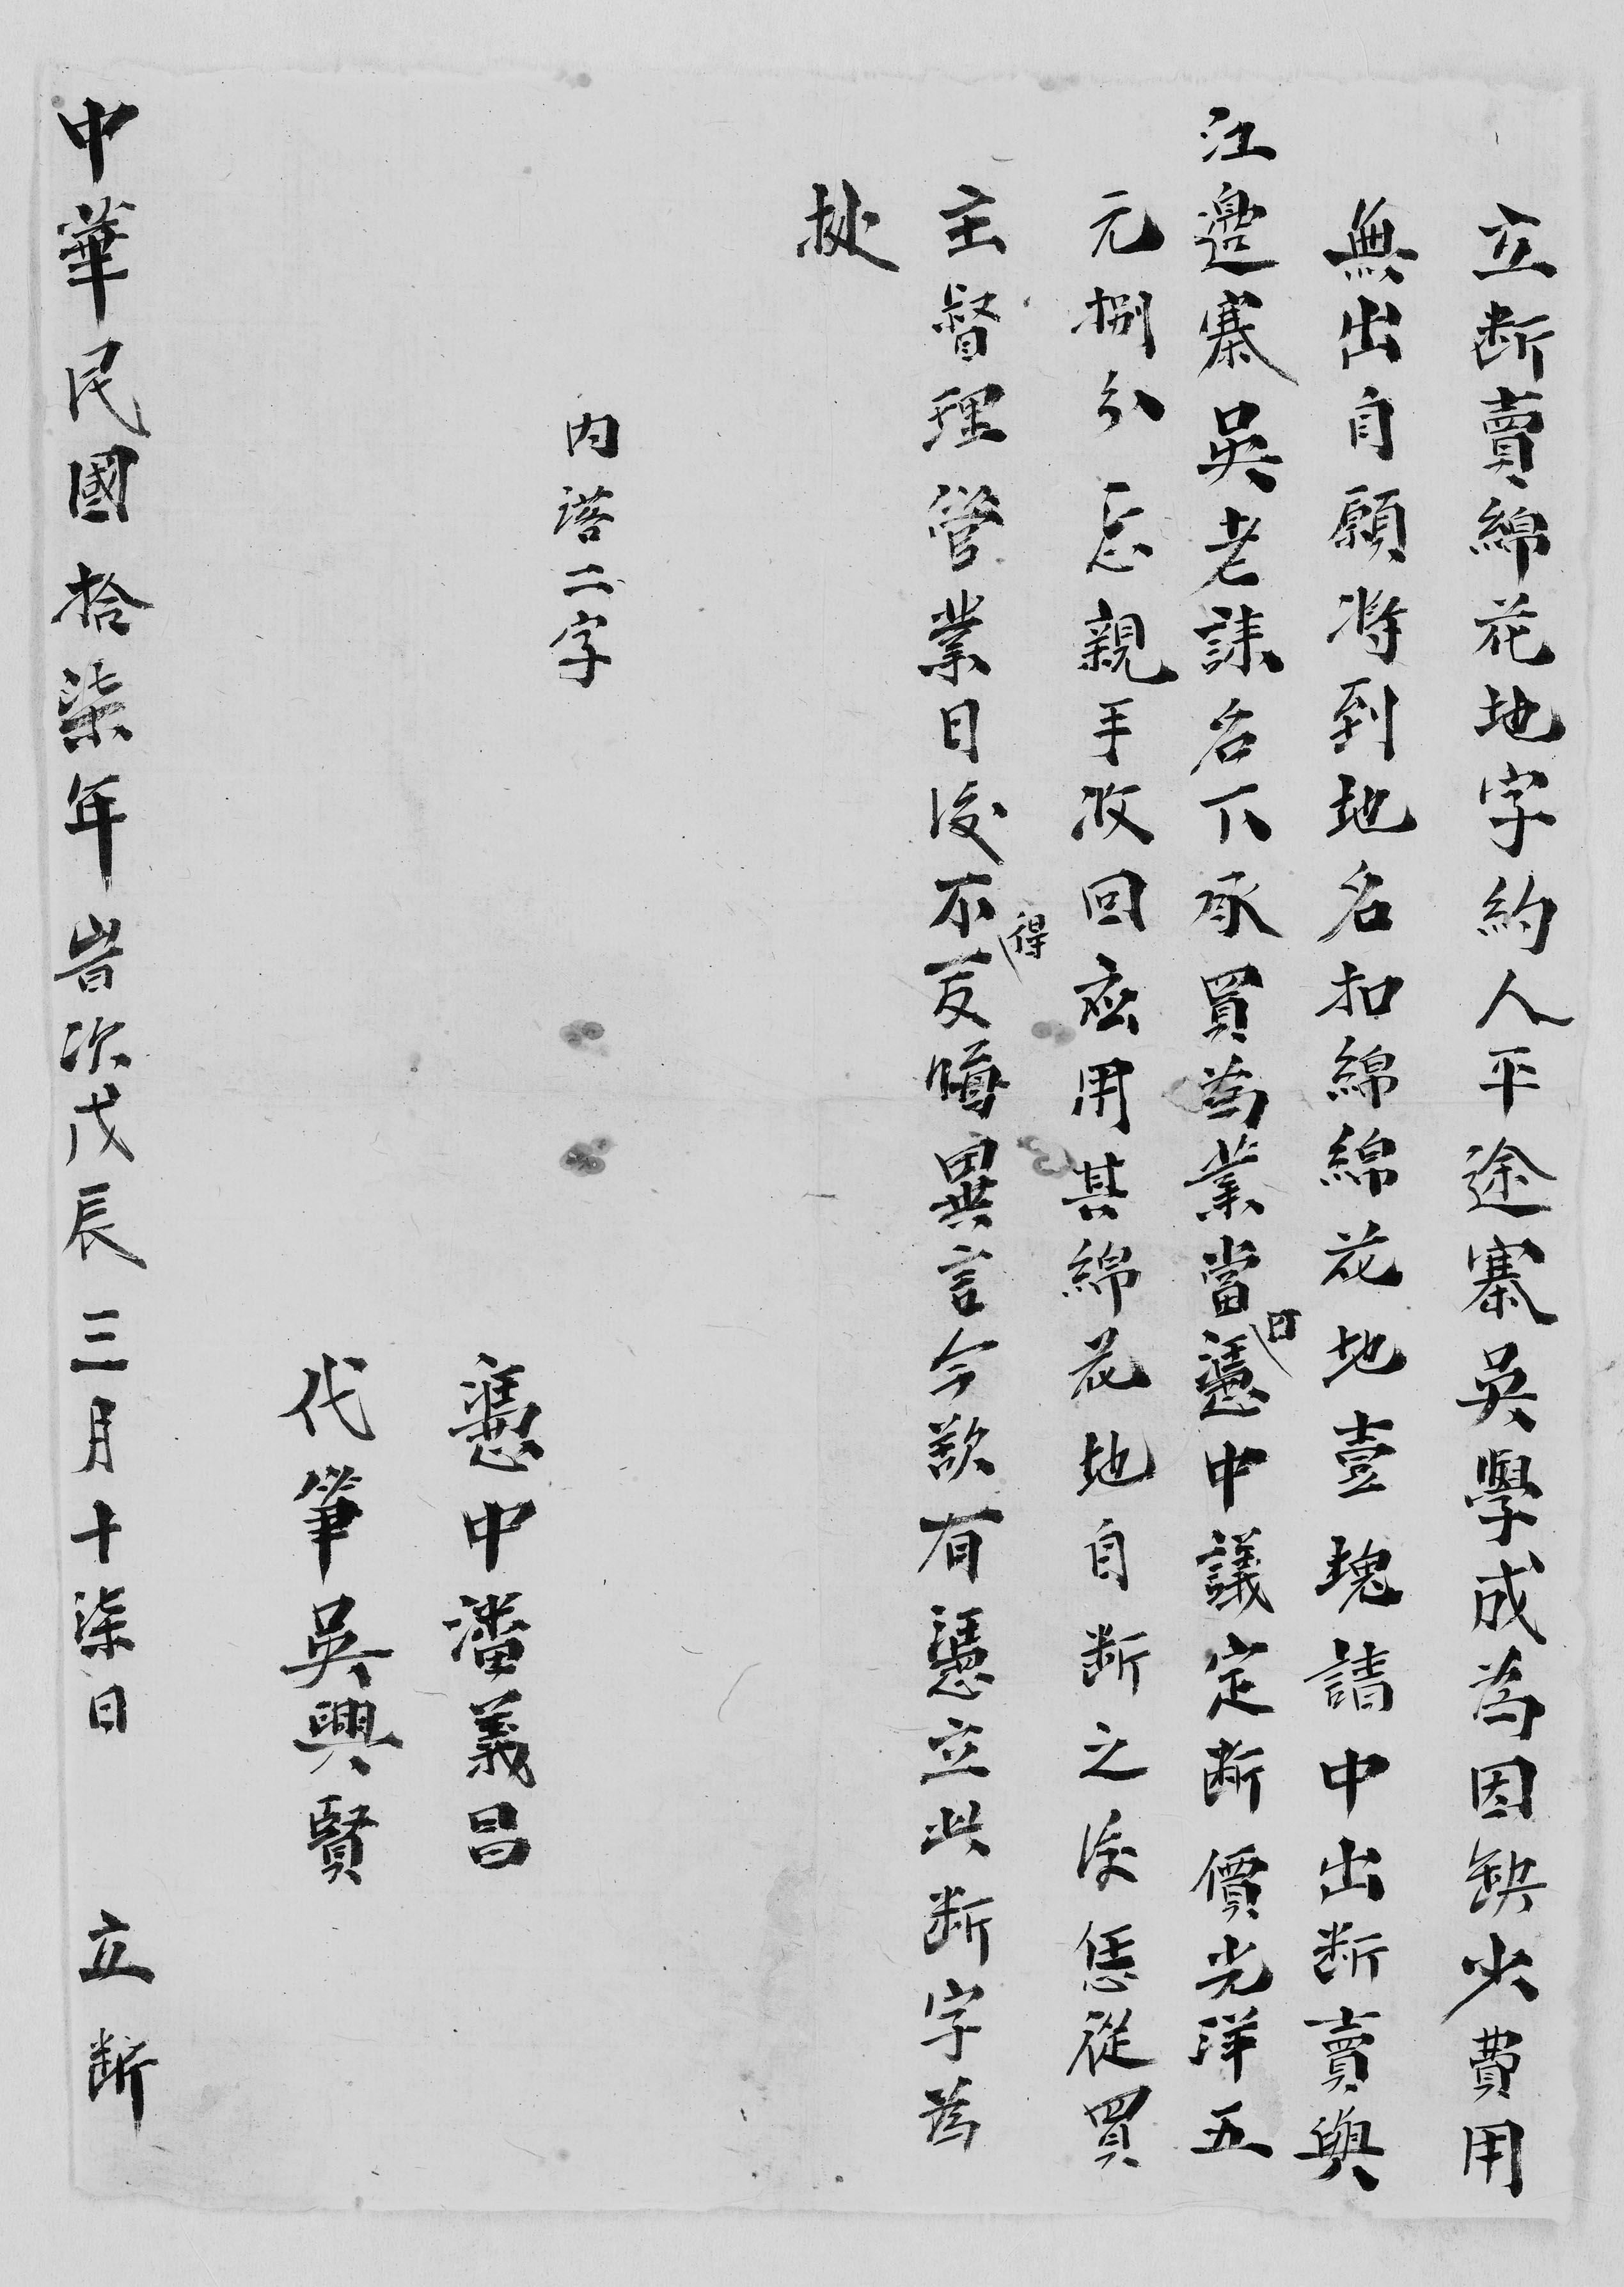 立断賣綿花地字約人平途寨吳學成為因缺少費用
無出自願將到地名扣綿綿花地壹塊請中出断賣與
江邊寨吳老謀名下承買為業當日憑中議定断價光洋五
元捌分忘親手收回應用其綿花地自断之後恁從買
主督理管業日後不得反悔異言今欲有憑立此断字為
㨿
内落二字
憑中潘義昌
代筆吳興賢
中華民國拾柒年歲次戊辰三月十柒日 立断